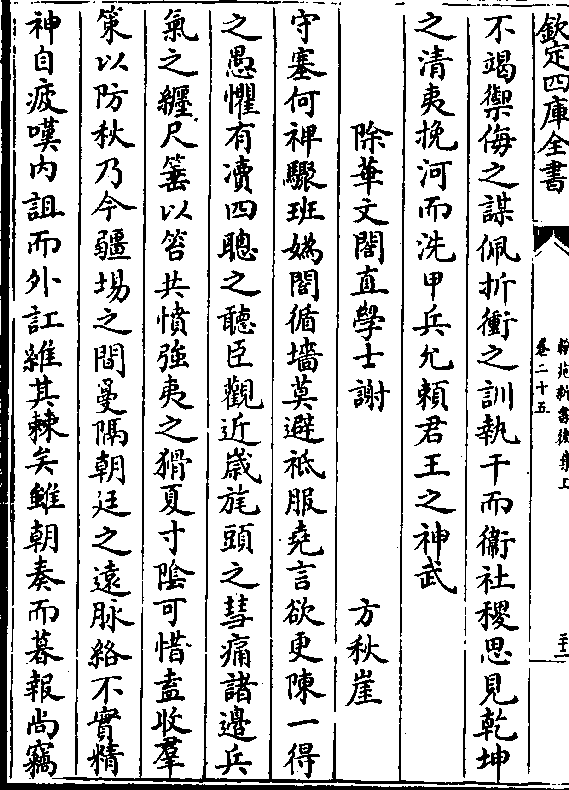 欽定四庫全書
翰苑新書後集上
卷二十五
不竭禦侮之謀佩折衝之訓執干而衞社稷思見乾坤
之清夷挽河而洗甲兵允頼君王之神武
除華文閣直學士謝 方秋崖
守塞何禆驟班媯閣循墻莫避祗服堯言欲更陳一得
之愚懼有凟四聰之聽臣觀近嵗旄頭之彗痛諸邊兵
氣之纒尺箠以笞共憤強夷之猾夏寸隂可惜盍收羣
策以防秋乃今疆埸之間曼隔朝廷之遠脉絡不實精
神自疲嘆内詛而外訌維其棘矣雖朝奏而暮報尚竊